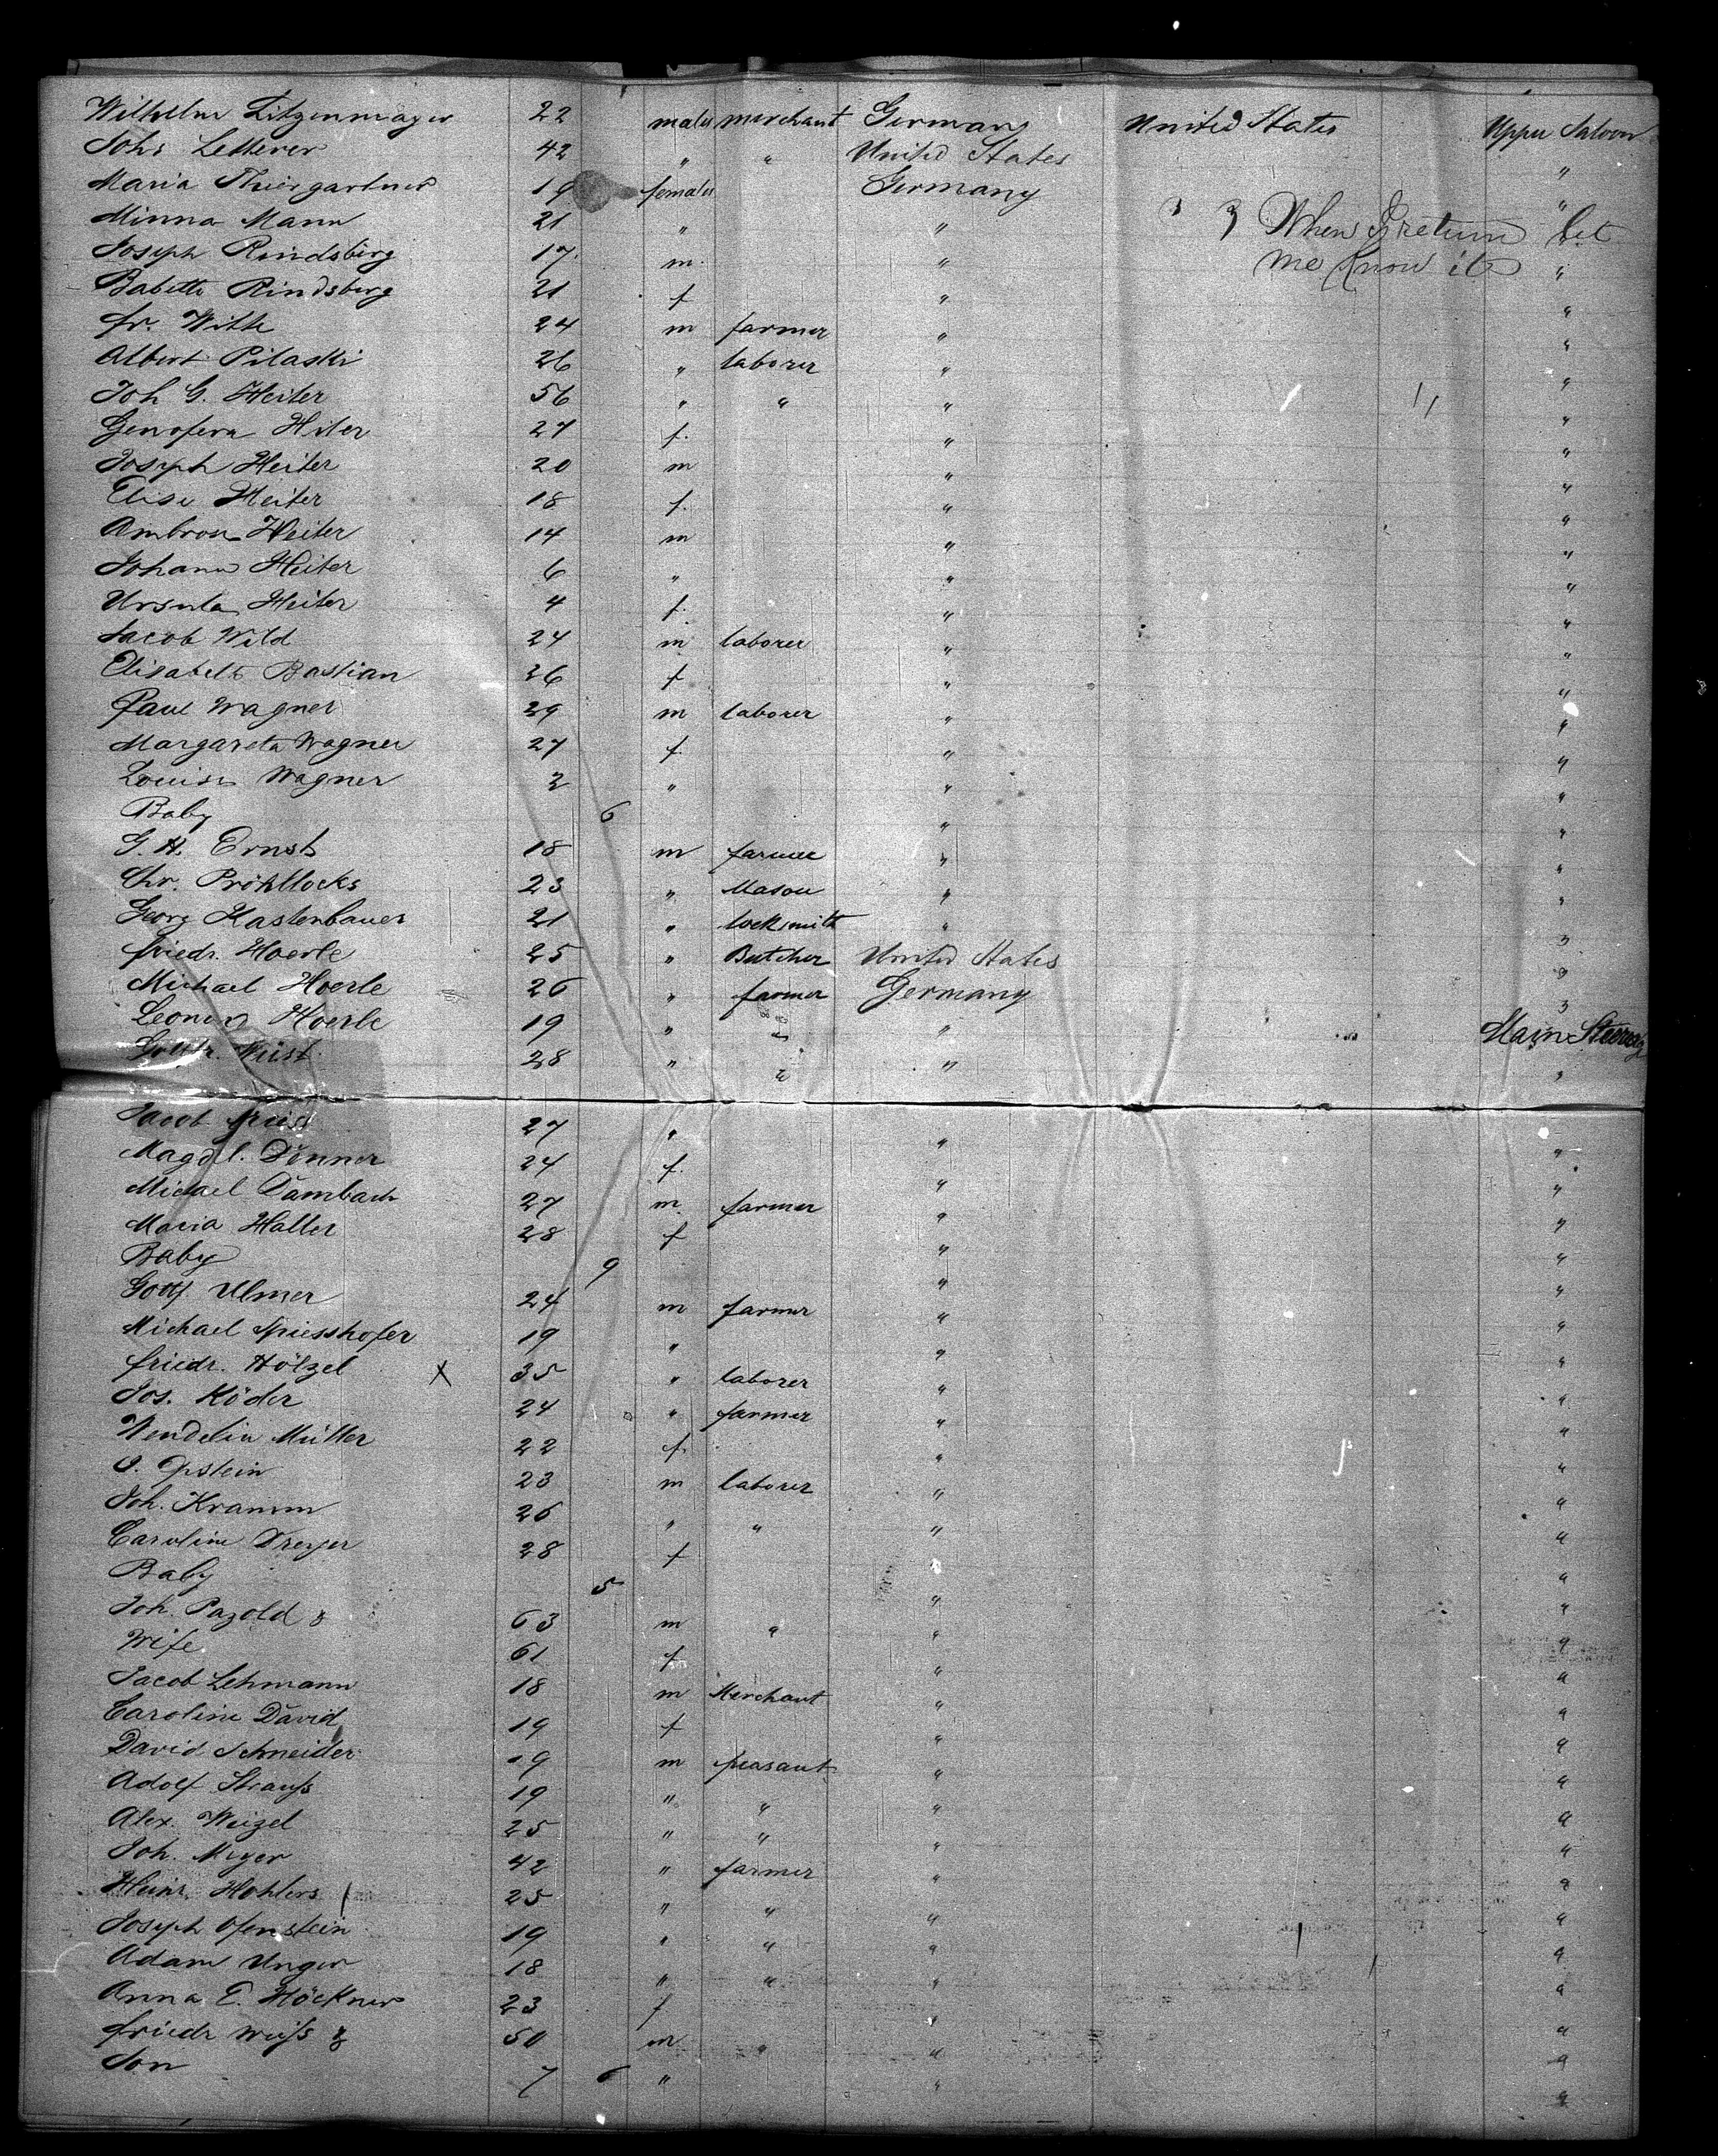 Wilhelm Litzenmayer 22 males merchant Germany United States Upper Saloon
Joh: Letterer 42 " " United States "
Maria Thiergartner 19 females Germany "
Minna Mann 21 " " When I return let "
Joseph Rindsberg 17. m. " me know it "
Babette Rindsberg 21 f " "
Fr. Witte 24 m farmer " "
Albert Pilaski 26 " laborer " "
Joh G. Heiter 56 " " " "
Genofeva Hiter 27 f. " "
Joseph Heiter 20 m " "
Elise Heiter 18 f. " "
Ambros Heiter 14 m " "
Johann Heiter 6 " " "
Ursula Heiter 4 f. " "
Jacob Wild 24 m laborer " "
Elisabeth Bastian 26 f " "
Paul Wagner 29 m laborer " "
Margareta Wagner 27 f. " "
Louise Wagner 2 " " "
Baby 6 " "
G. H. Ernst 18 m farmer " "
Chr. Pröhllocks 23 " Mason " "
Georg Kastenbauer 21 " locksmith " "
Friedr. Hoerle 25 " Butcher United States "
Michael Hoerle 26 " farmer Germany "
Leonor Hoerle 19 " " " Main Steerag
Gottlr. Wüst 28 " " " "
Jacob 27 " " "
Magdl. Denner 24 f. " "
Michael Dambach 27 m. farmer " "
Maria Haller 28 f " "
Baby 9 " "
Gottf Ulmer 24 m farmer " "
Michael Spiesshofer 19 " " "
Friedr. Hölzel X 35 " laborer " "
Jos. Köder 24 " farmer " "
Wendelin Müller 22 f. " "
O. Epstein 23 m laborer " "
Joh. Kramm 26 " " " "
Caroline Dreyer 28 f " "
Baby 5 " "
Joh. Pazold & 63 m " " "
Wife 61 f " "
Jacob Lehmann 18 m Merchant " "
Caroline David 19 f " "
David Schneider 19 m peasant " "
Adolf Strauss 19 " " " "
Alex. Weizel 25 " " " "
Joh. Meyer 42 " farmer " "
Heinr. Hohlers 25 " " " "
Joseph Ofenstein 19 " " " "
Adam Unger 18 " " " "
Anna E. Höckner 23 f " "
Friedr Weiss & 50 m " " "
Son 7 6 " " "